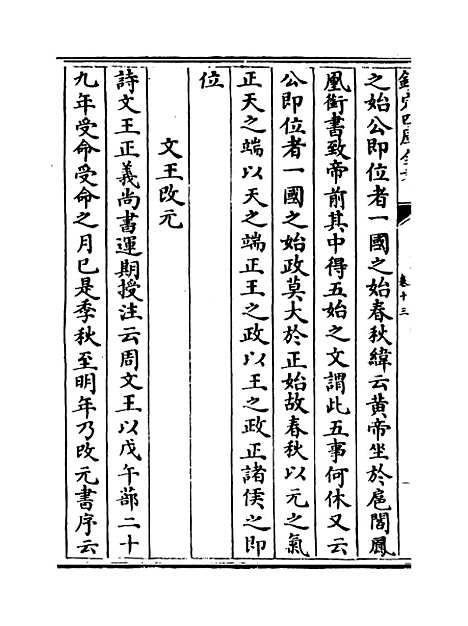 欽定四庫全書
卷十三
之始公即位者一國之始春秋緯云黃帝坐於扈閣鳳
凰銜書致帝前其中得五始之文謂此五事何休又云
公即位者一國之始政莫大於正始故春秋以元之氣
正天之端以天之端正王之政以王之政正諸侯之即
位
文王改元
詩文王正義尚書運期授注云周文王以戊午蔀二十
九年受命受命之月已是季秋至明年乃改元書序云